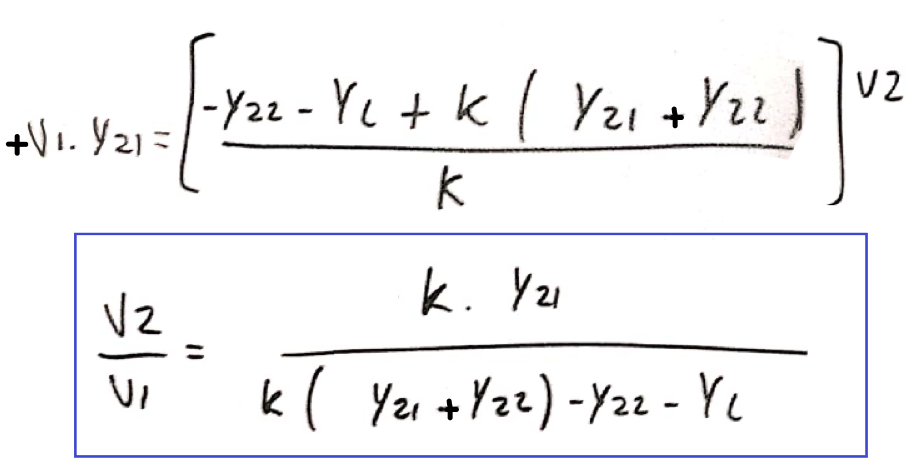 +V1. Y21 = [ (-Y22 - YL + k ( Y21 + Y22 )) / k ] V2
V2 / V1 = k. Y21 / (k ( Y21 + Y22 ) - Y22 - YL)